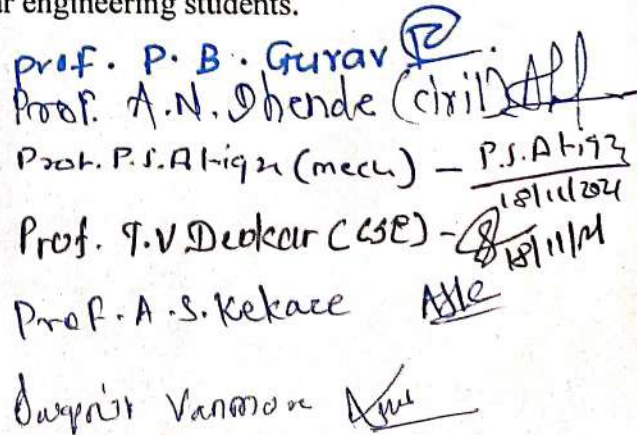 engineering students.
Prof. P. B. Gurav
Prof. A.N. Dhende (civil)
Prof. P.S. (mech) - P.S.
18/11/2021
Prof. T.V Deokar (CSE) -
18/11/21
Prof. A.S. Kekare
Vanmore